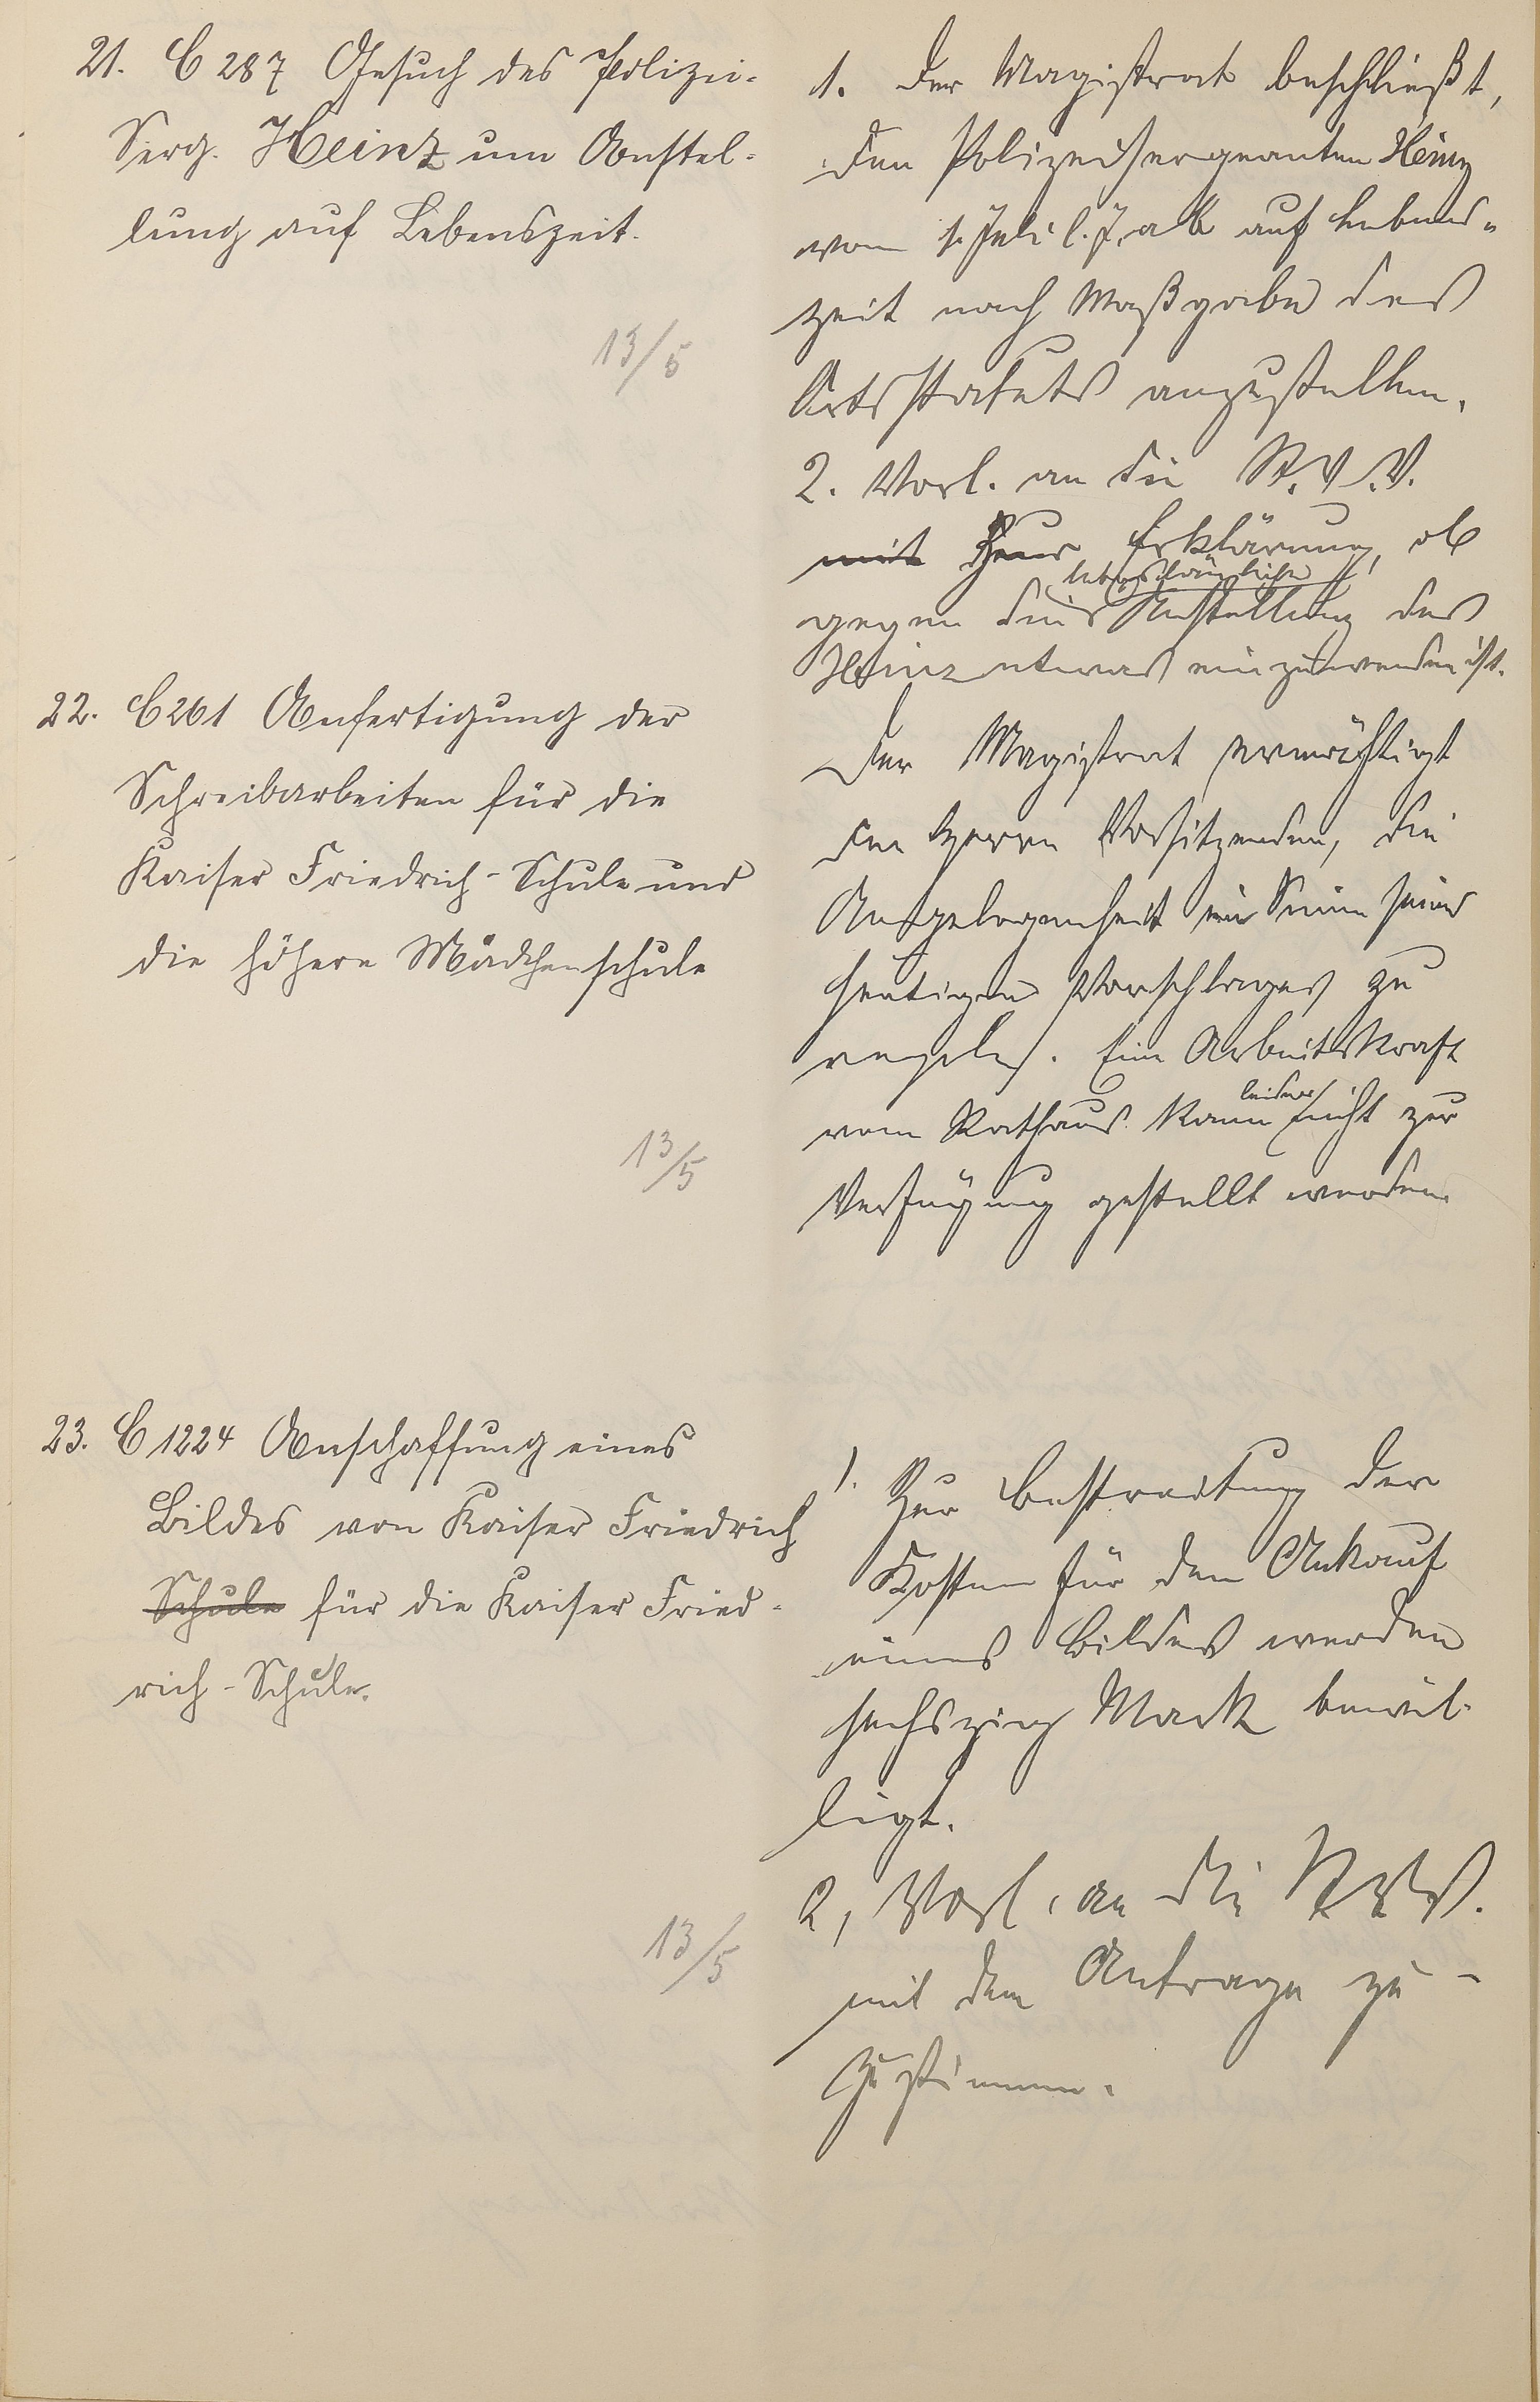 21. C 287 Gesuch des Polizei-
Serg. Heinz um Anstel-
lung auf Lebenszeit.
13/5
1. Der Magistrat beschließt,
den Polizeisergeanten Heinz
vom 1. Juli l. J. ab auf Lebens-
zeit nach Maßgabe des
Ortsstatuts anzustellen.
2. Vorl. an die St. V. V.
mit zur Erklärung, ob
lebenslängliche
gegen die Anstellung des
Heinz etwas einzuwenden ist.
22. C 261 Anfertigung der
Schreibarbeiten für die
Kaiser Friedrich-Schule und
die höhere Mädchenschule
13/5
Der Magistrat ermächtigt
den Herrn Vorsitzenden, die
Angelegenheit im Sinne seines
heutigen Vorschlages zu
regeln. Eine Arbeitskraft
leider
vom Rathaus kann nicht zur
Verfügung gestellt werden.
23. C 1224 Anschaffung eines
Bildes von Kaiser Friedrich
Schule für die Kaiser Fried-
rich-Schule.
13/5
1. Zur Bestreitung der
Kosten für den Ankauf
eines Bildes werden
sechszig Mark bewil-
ligt.
2, Vorl. an die St. V. V.
mit dem Antrage zu-
zustimmen.